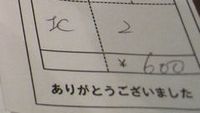 IC 2
¥ 600
ありがとうございました